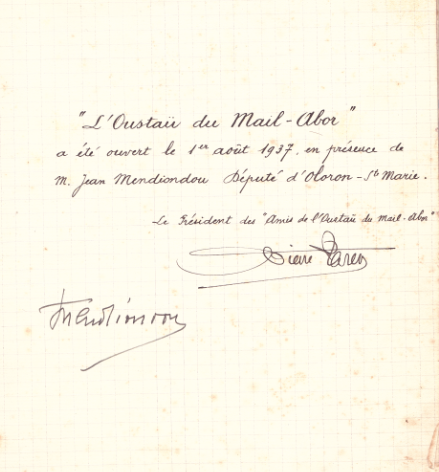 "L'Oustaü du Mail-Abor"
a été ouvert le 1er août 1937, en présence de
M. Jean Mendiondou Député d'Oloron-Ste Marie.
Le Président des "Amis de l'Oustaü du Mail-Abor"
Pierre
Mendiondou